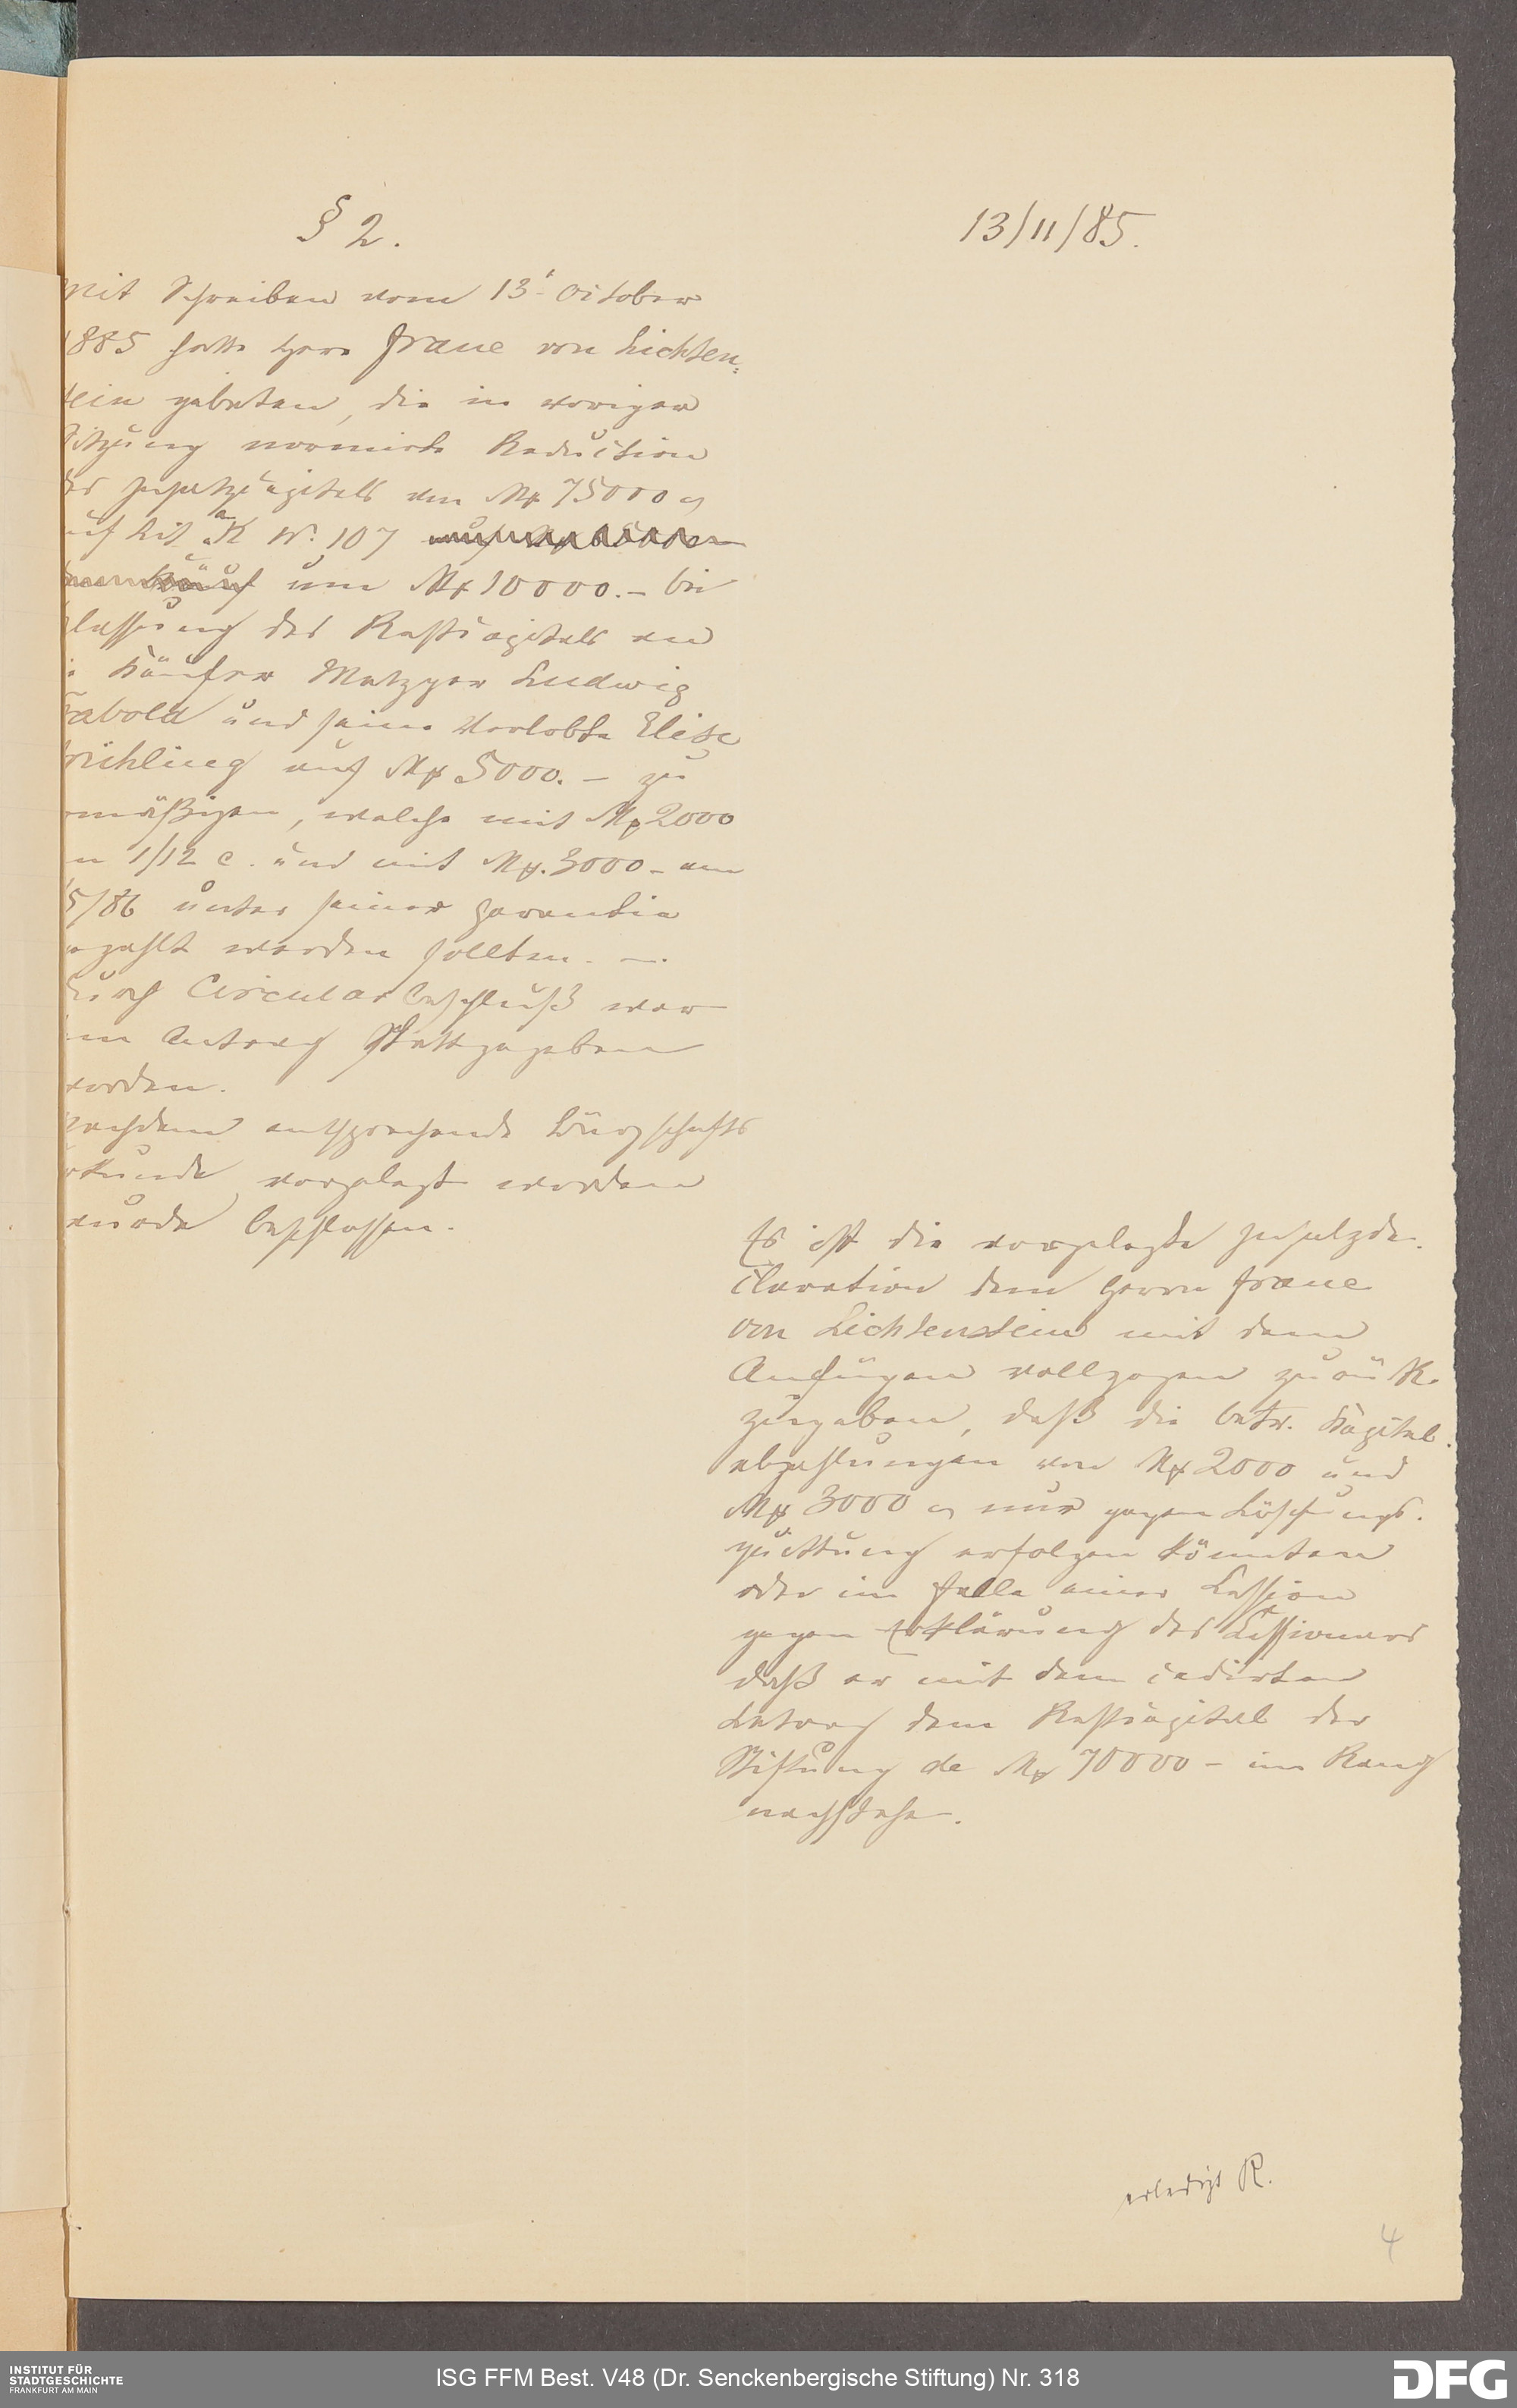 § 2.
13/11/85.
Mit Schreiben vom 13. October
1885 hatte Herr Franc von Lichten-
stein gebeten, die in voriger
Sitzung normirte Reduction
des Insatzcapitals von M 75000
auf Lit. K No. 107
um M 10000.– bei
lassung des Restcapitals an
Käufer Metzger Ludwig
abold und seine Verlobte Elise
rühling auf M 5000.– zu
ermäßigen, welche mit M 2000
1/12 c. und mit M. 3000 – am
5/86 unter seiner Garantie
zahlt werden sollten. –.
Durch Circularbeschluß war
dem Antrag stattgegeben
worden.
Nachdem entsprechende Bürgschafts
urkunde vorgelegt worden
wurde beschlossen.
Es ist die vorgelegte Insatzde-
claration dem Herrn Franc
von Lichtenstein mit dem
Anfügen vollzogen zurück
zugeben, daß die betr. Kapital-
abzahlungen von M 2000 und
M 3000 nur gegen Löschungs-
quittung erfolgen könnten
oder im Falle einer Cession
gegen Erklärung des Cessionars
daß er mit dem cedirten
Betrag dem Restcapital der
Stiftung de M 70000 – im Rang
nachstehe.
erledigt R.
4
INSTITUT FÜR
STADTGESCHICHTE
FRANKFURT AM MAIN
ISG FFM Best. V48 (Dr. Senckenbergische Stiftung) Nr. 318
DFG